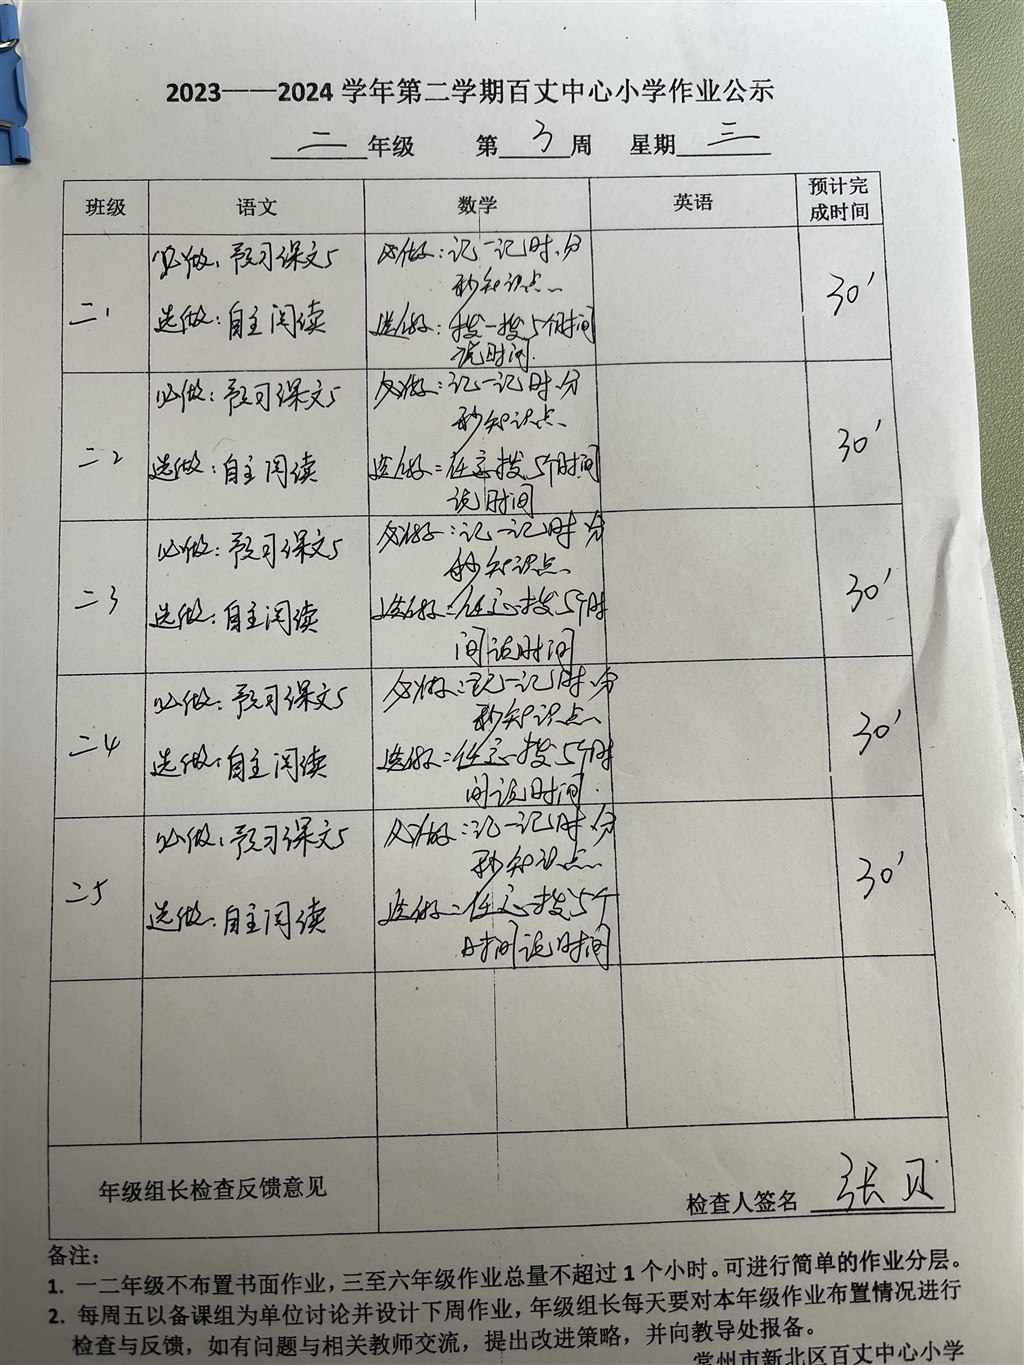 2023——2024 学年第二学期百丈中心小学作业公示
二 年级 第 3 周 星期 三
班级 语文 数学 英语 预计完成时间
二1
必做：预习课文5
选做：自主阅读
必做：记一记时、分
秒知识点。
选做：拨一拨5个时间
说时间.
30'
二2
必做：预习课文5
选做：自主阅读
必做：记一记时、分
秒知识点、
选做：任意拨5个时间
说时间
30'
二3
必做：预习课文5
选做：自主阅读
必做：记一记时、分
秒知识点、
选做：任意拨5个时
间说时间
30'
二4
必做：预习课文5
选做：自主阅读
必做：记一记时、分
秒知识点、
选做：任意拨5个时
间说时间.
30'
二5
必做：预习课文5
选做：自主阅读
必做：记一记时、分
秒知识点、
选做：任意拨5个
时间说时间
30'
年级组长检查反馈意见
检查人签名 张贝
备注：
1. 一二年级不布置书面作业，三至六年级作业总量不超过 1 个小时。可进行简单的作业分层。
2. 每周五以备课组为单位讨论并设计下周作业，年级组长每天要对本年级作业布置情况进行
检查与反馈，如有问题与相关教师交流，提出改进策略，并向教导处报备。
常州市新北区百丈中心小学